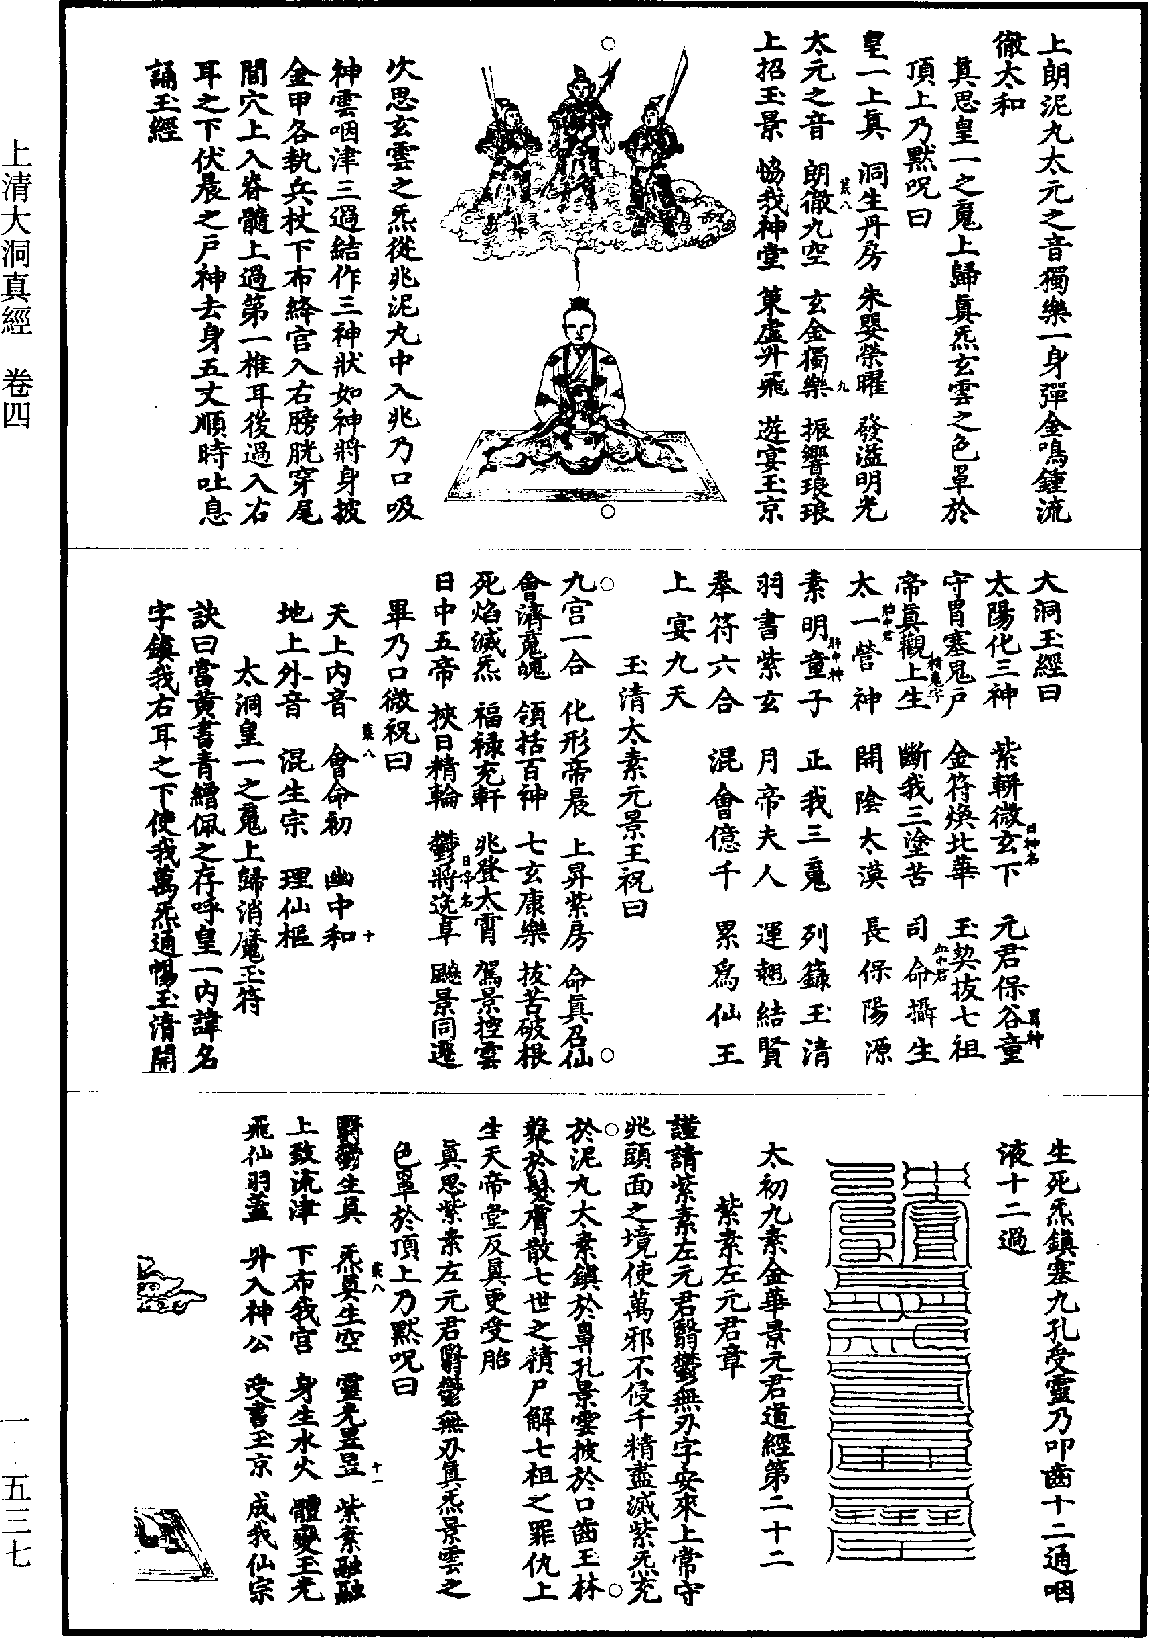 上朗泥丸太元之音獨樂一身彈金鳴鍾流
徹太和
真思皇一之䰟上歸真炁玄雲之色罩於
頂上乃默呪曰
皇一上真 洞生丹房 朱嬰榮曜 發溢明光
太元之音 朗徹九空 玄金獨樂 振響琅琅
上招玉景 協我神堂 策虛升飛 遊宴玉京
次思玄雲之炁從兆泥丸中入兆乃口吸
神雲咽津三過結作三神狀如神將身披
金甲各執兵杖下布絳宫入右膀胱穿尾
閭穴上入脊髓上過第一椎耳後過入右
耳之下伏晨之戶神去身五丈順時吐息
誦玉經
大洞玉經曰
太陽化三神 紫軿微玄下 元君保谷童
守胃塞鬼戶 金符煥北華 玉契拔七祖
帝真觀上生 斷我三塗苦 司命攝生
太一營神 開陰太漠 長保陽源
素明童子 正我三䰟 列籙玉清
羽書紫玄 月帝夫人 運翹結賢
奉符六合 混會億千 累爲仙王
上宴九天
玉清太素元景王祝曰
九宫一合 化形帝晨 上昇紫房 命真召仙
會濟䰟魄 領括百神 七玄康樂 拔苦破根
死焰滅炁 福禄充軒 兆登太霄 駕景控雲
日中五帝 挾日精輪 鬱將逸阜 飈景同遷
畢乃口微祝曰
天上内音 會命初 幽中和
地上外音 混生宗 理仙樞
太洞皇一之䰟上歸消魔玉符
訣曰當黄書青繒佩之存呼皇一内諱名
字鎮我右耳之下使我萬炁通暢玉清開
生死炁鎮塞九孔受靈乃叩齒十二通咽
液十二過
太初九素金華景元君道經第二十二
紫素左元君章
謹請紫素左元君翳鬱無刃字安來上常守
兆頭面之境使萬邪不侵千精盡滅紫炁充
於泥丸太素鎮於鼻孔景雲披於口齒玉林
蘂於髮膚散七世之積尸解七祖之罪仇上
生天帝堂反真更受胎
真思紫素左元君翳鬱無刃真炁景雲之
色罩於頂上乃默呪曰
翳鬱生真 炁真生空 靈光昱昱 紫素融融
上致流津 下布我宫 身生水火 體變玉光
飛仙羽蓋 升入神公 受書玉京 成我仙宗
上清大洞真經 卷四
一·五三七